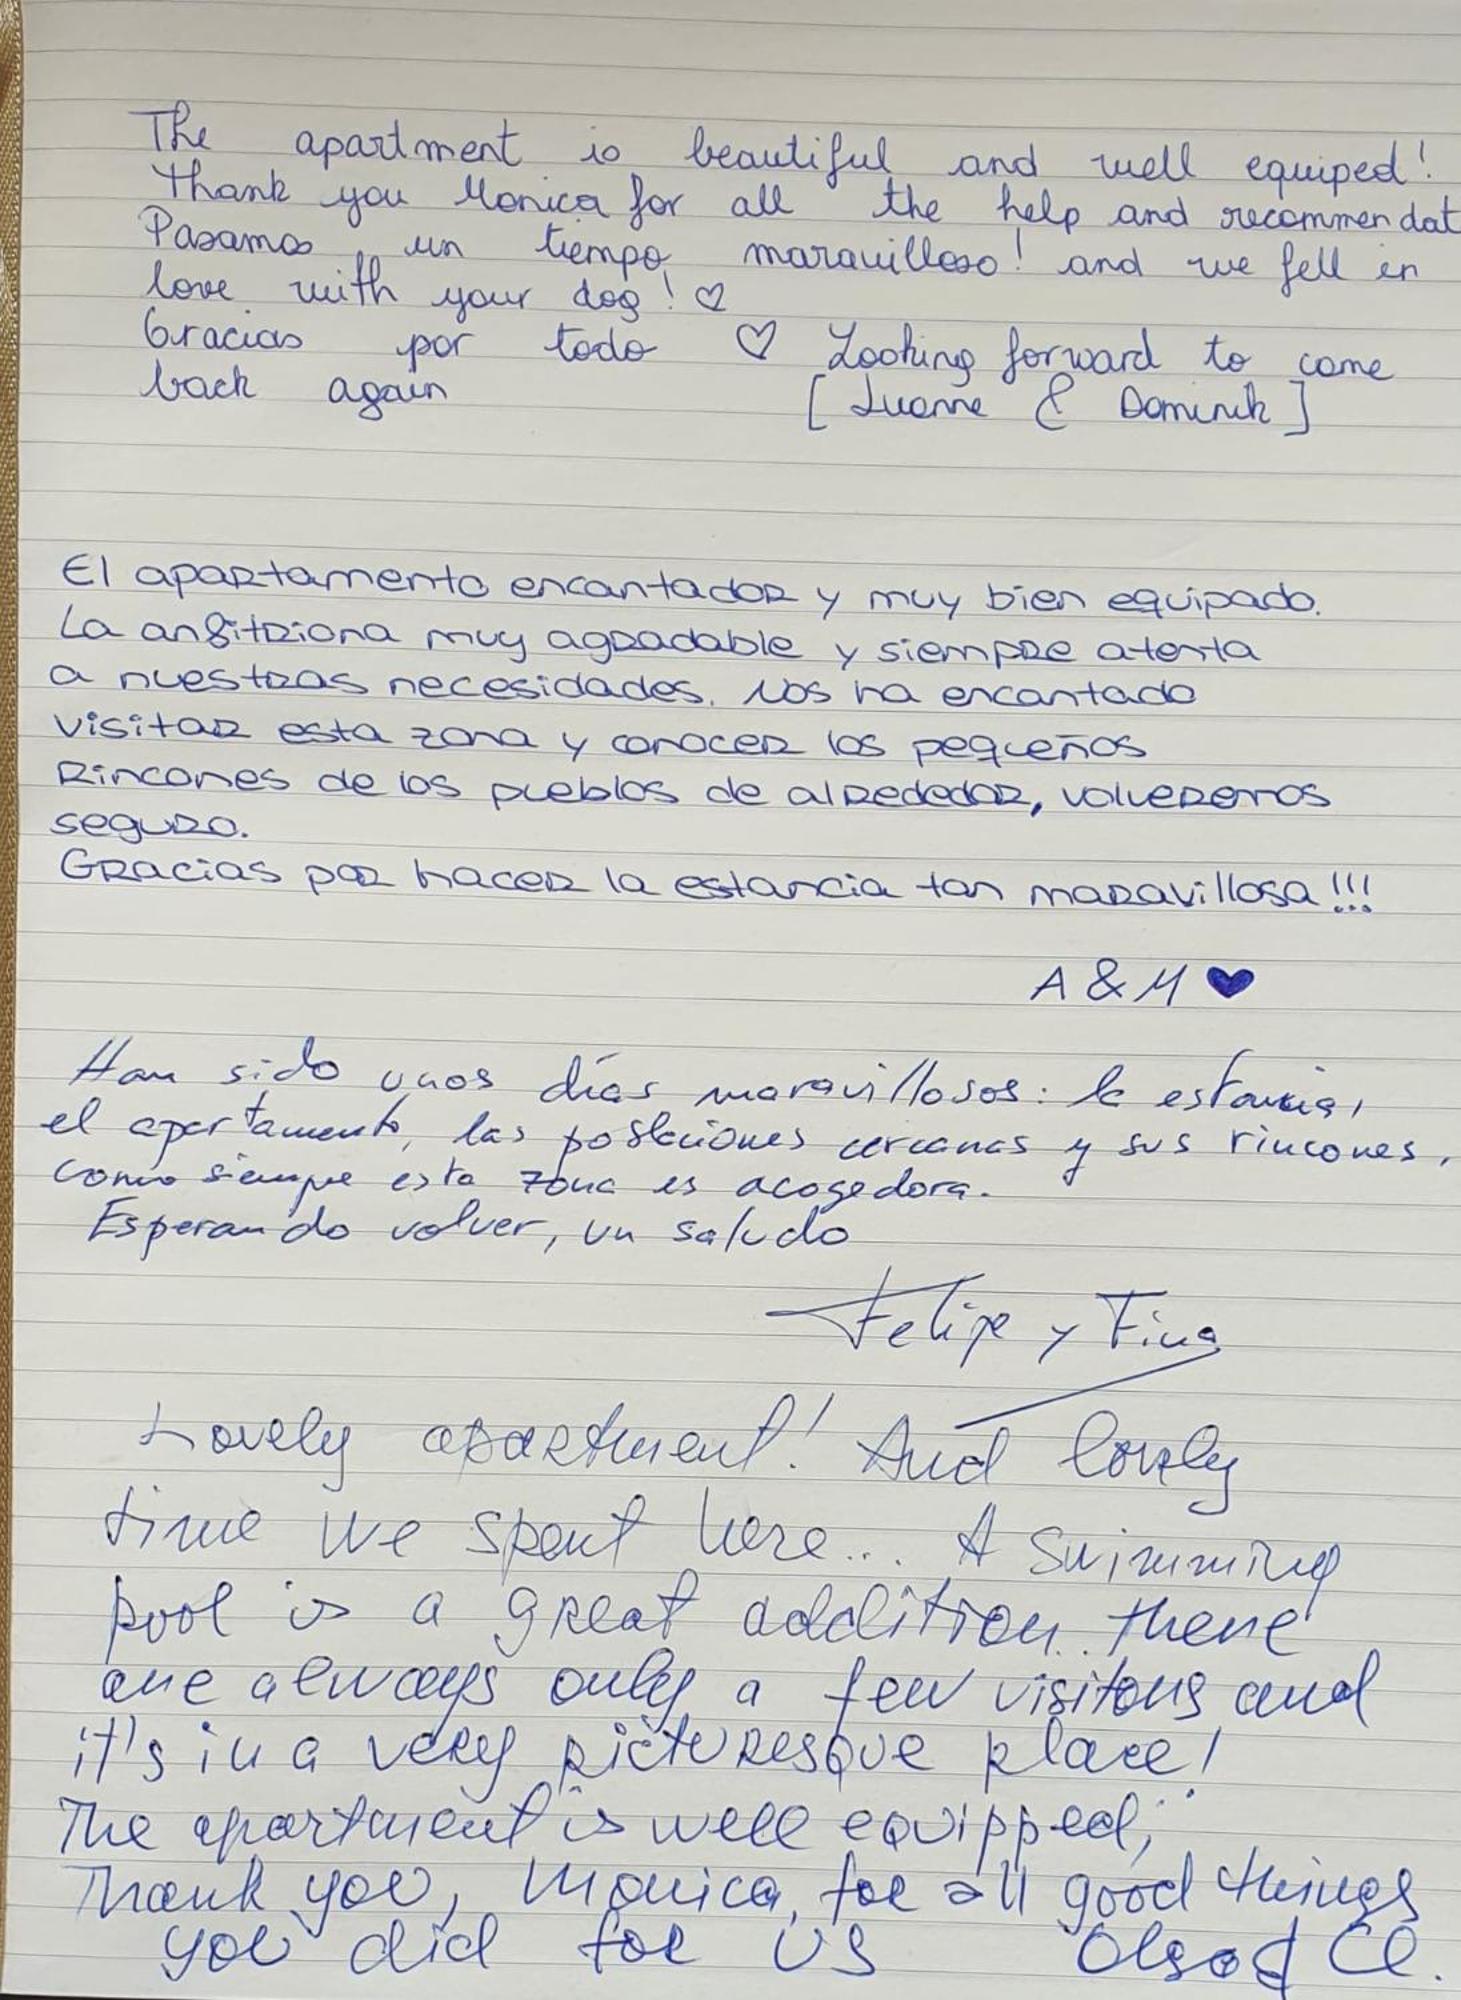 The apartment is beautiful and well equiped!
Thank you Monica for all the help and recommendat
Pasamos un tiempo maravilloso! and we fell in
love with your dog! ♡
Gracias por todo ♡ Looking forward to come
back again [ & Dominik]
El apartamento encantador y muy bien equipado.
La anfitriona muy agradable y siempre atenta
a nuestras necesidades. Nos ha encantado
visitar esta zona y conocer los pequeños
rincones de los pueblos de alrededor, volveremos
seguro.
Gracias por hacer la estancia tan maravillosa!!!
A & M ♥
Han sido unos días maravillosos: la estancia,
el apartamento, las poblaciones cercanas y sus rincones,
como siempre esta zona es acogedora.
Esperando volver, un saludo
Felipe y Fina
Lovely apartment! And lovely
time we spent here... A swimming
pool is a great addition there
are always only a few visitors and
it's in a very picturesque place!
The apartment is well equipped,
Thank you, Monica, for all good things
you did for us